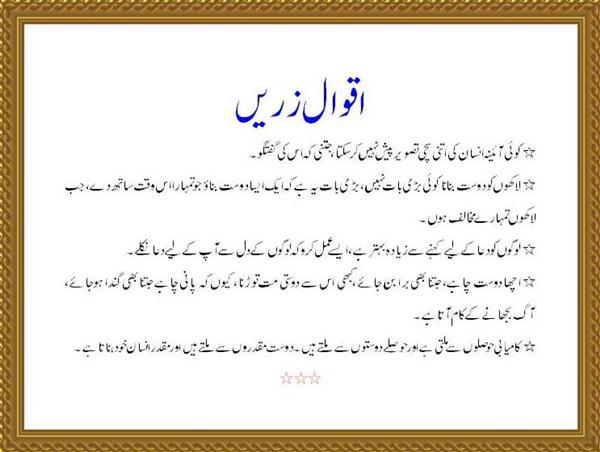 اقوال زریں
☆ کوئی آئینہ انسان کی اتنی سچی تصویر پیش نہیں کر سکتا، جتنی کہ اس کی گفتگو۔
☆ لاکھوں کو دوست بنانا کوئی بڑی بات نہیں، بڑی بات یہ ہے کہ ایک ایسا دوست بناؤ جو تمہارا اس وقت ساتھ دے، جب
لاکھوں تمہارے مخالف ہوں۔
☆ لوگوں کو دعا کے لیے کہنے سے زیادہ بہتر ہے، ایسے عمل کرو کہ لوگوں کے دل سے آپ کے لیے دعا نکلے۔
☆ اچھا دوست چاہے، جتنا بھی برا بن جائے، کبھی اس سے دوستی مت توڑنا، کیوں کہ پانی چاہے جتنا بھی گندا ہو جائے،
آگ بجھانے کے کام آتا ہے۔
☆ کامیابی حوصلوں سے ملتی ہے اور حوصلے دوستوں سے ملتے ہیں۔ دوست مقدروں سے ملتے ہیں اور مقدر انسان خود بناتا ہے۔
☆☆☆